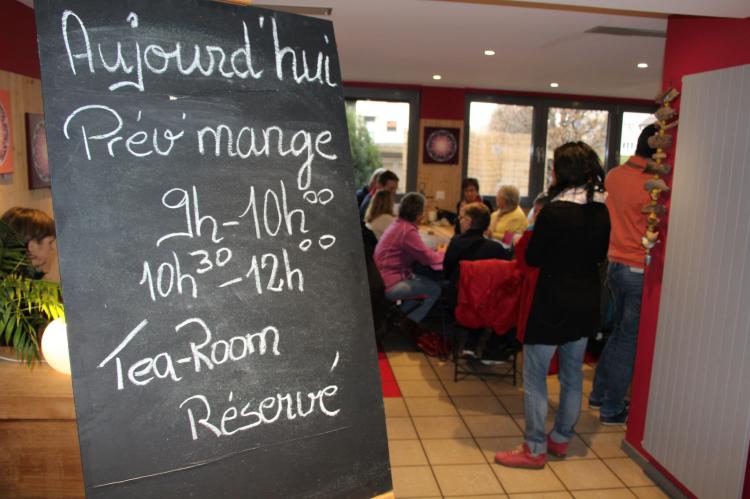 Aujourd'hui
Prév'mange
9h-10h⁰⁰
10h³⁰-12h⁰⁰
Tea-Room
Réservé